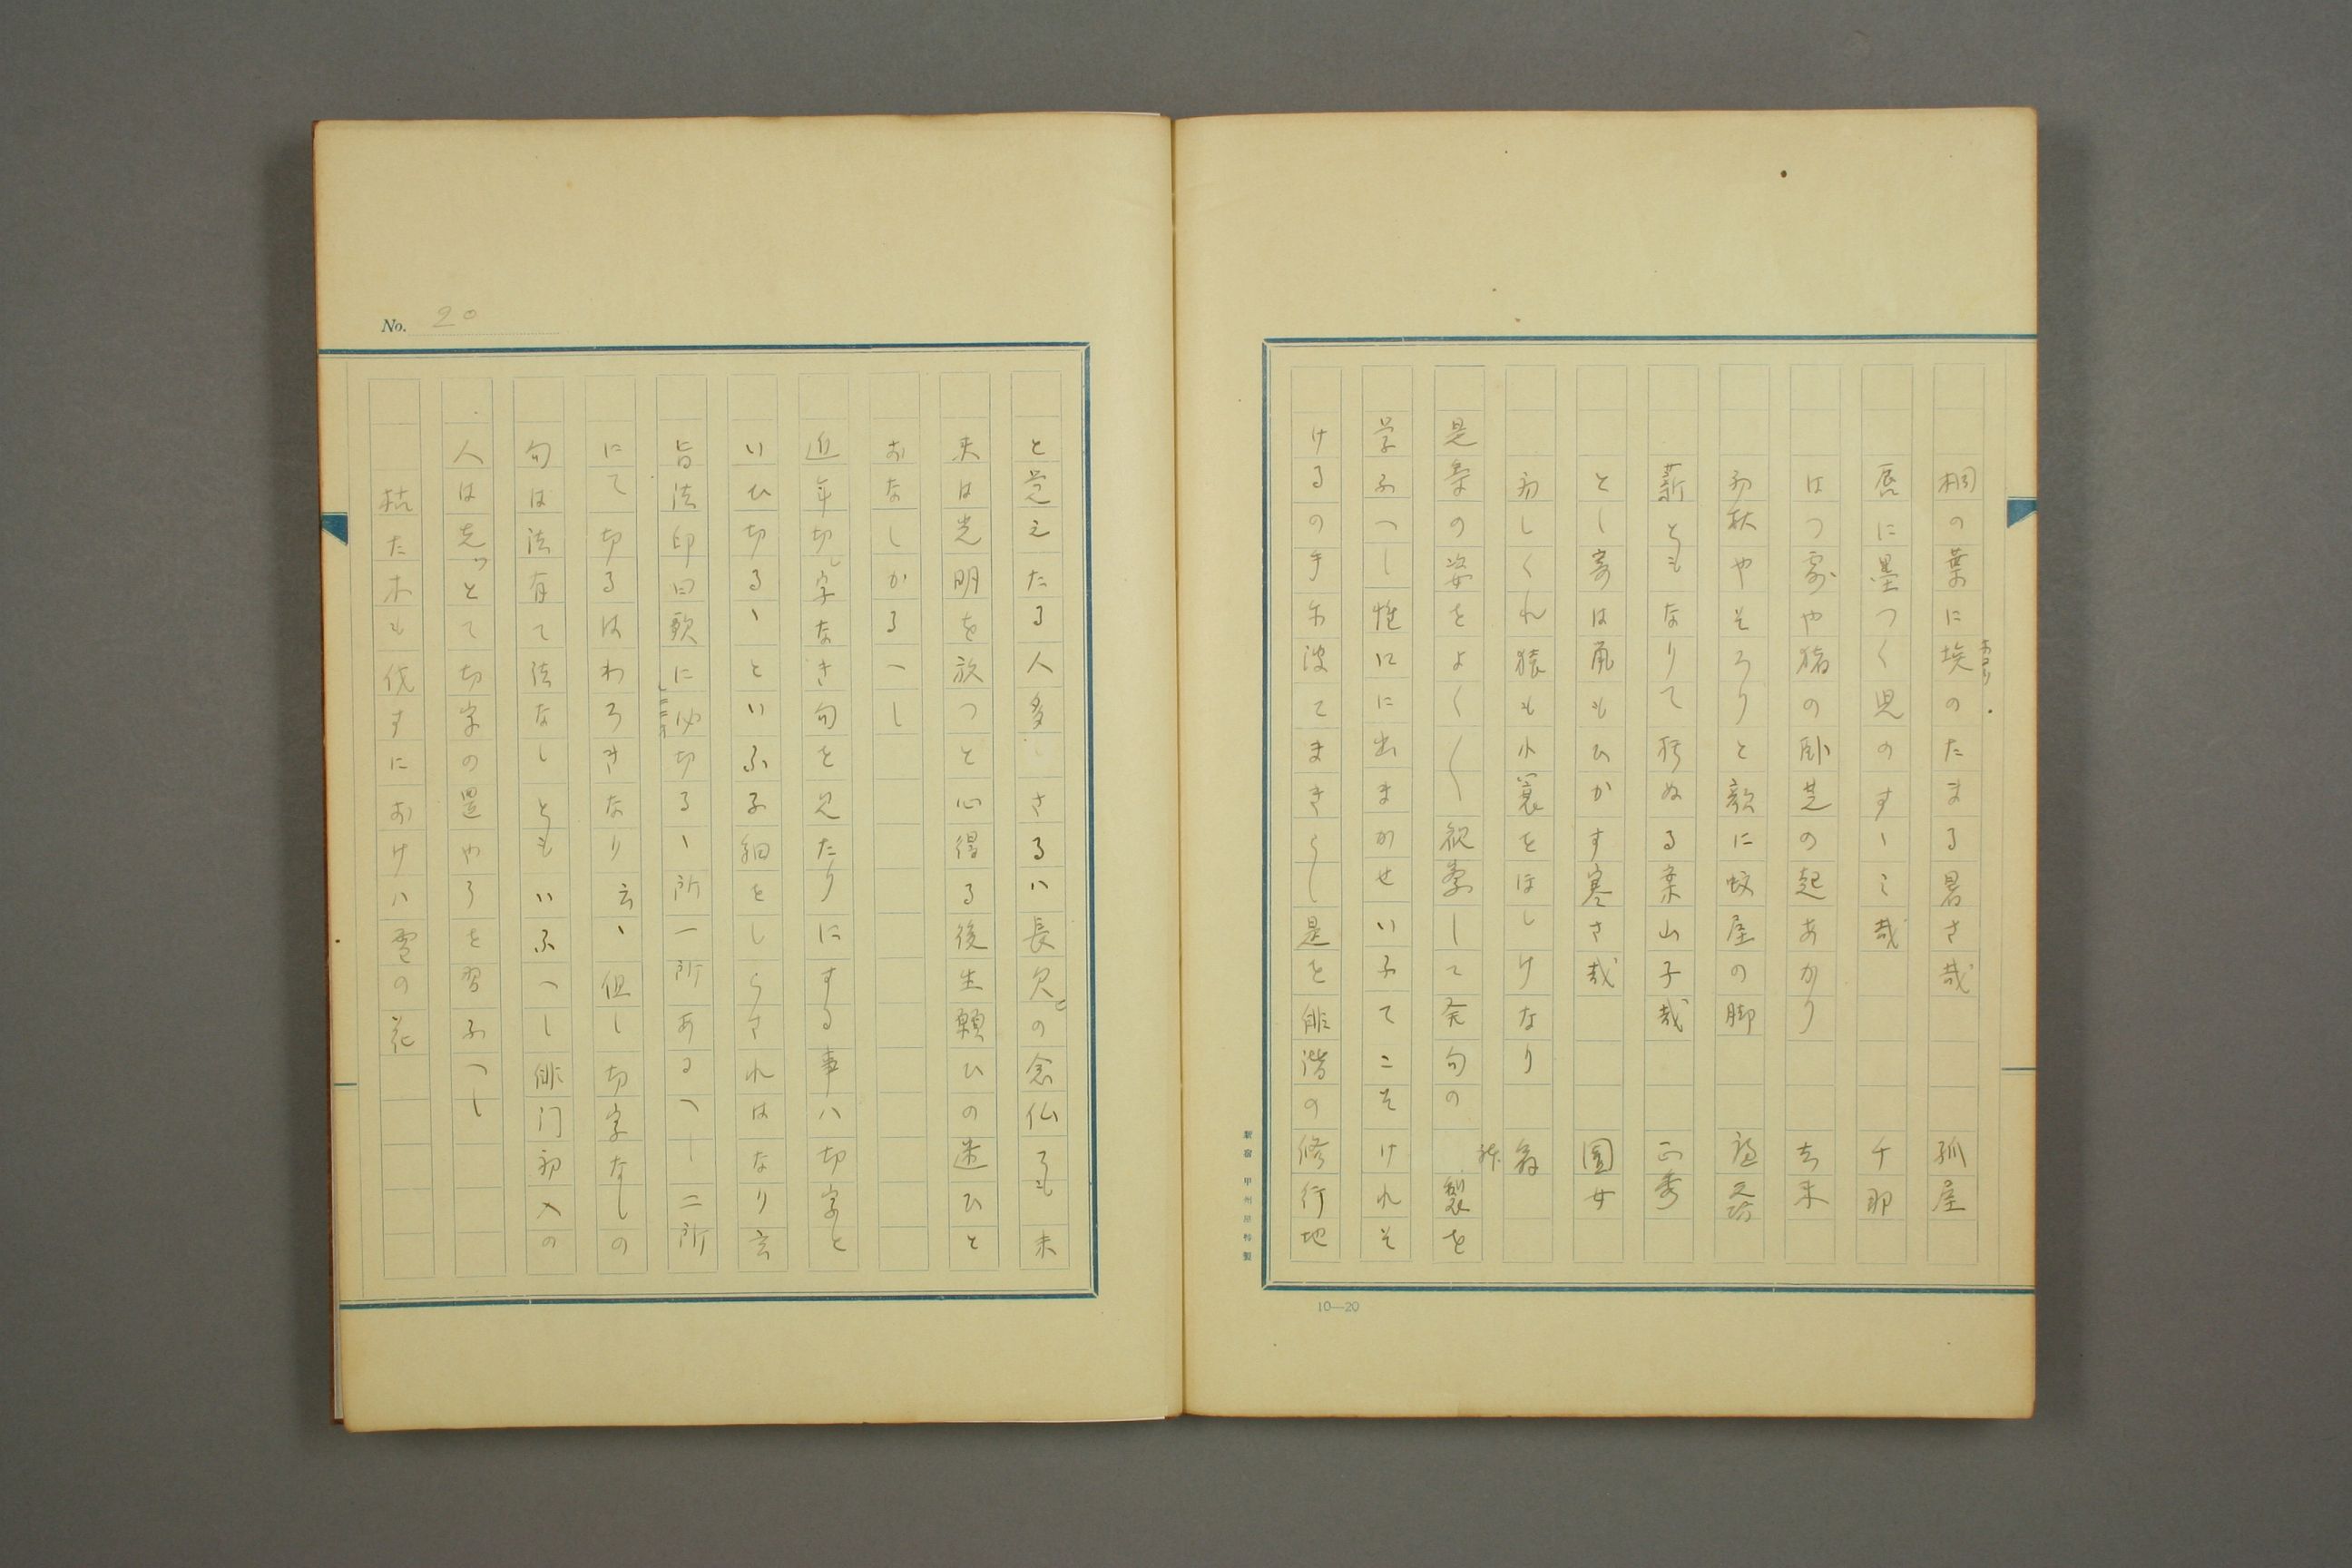 桐の葉に埃のたまる暑さ哉 孤屋
ホコリ
唇に墨つく児のすゝミ哉 千那
はつ露や猪の臥芝の起あかり 去来
初秋やそろりと顔に蚊屋の脚 蘆本
薪ともなりて朽ぬる案山子哉 正秀
とし寄は風もひかす寒さ哉 園女
初しくれ猿も小蓑をほしけなり 翁
是等の姿をよく〳〵観察して発句の 製を
学ふへし惟に出まかせいふてこそけれそ
けるの手尓波てまきらし是を俳諧の修行地
10—20
No. 20
と覚えたる人多 さるハ長欠の念仏とも 未
来は光明を放つと心得る後生願ひの迷ひと
おなしかるへし
近年切字なき句を見たりにする事ハ切字と
いひ切るゝといふ子細をしらされはなり玄
旨法印曰歌に必切るゝ所一所あるへし二所
にて切るはわろきなり云、但し切字なしの
句は法有て法なしともいふへし俳门初入の
人は先ッとて切字の置やうを習ふへし
枯た木も伐すにおけハ雪の花